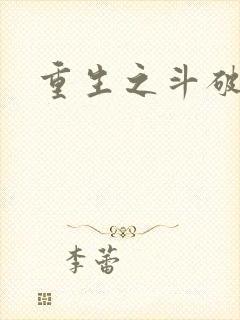 重生之斗破
李蕾